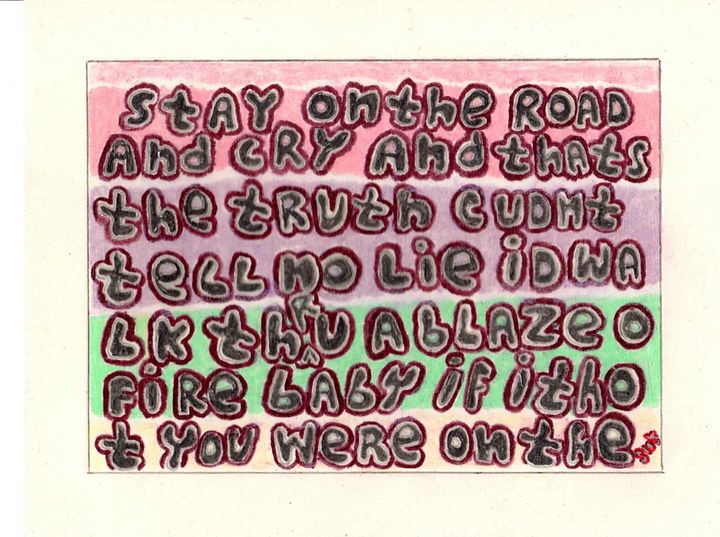 StAY ONthe ROAD
ANd CRY ANdthAtS
the tRUth CUDNt
teLL NO Lie iDWA
LK thRU A BLAZE O
FiRe bABY iF ithO
t YOU WERE ON the